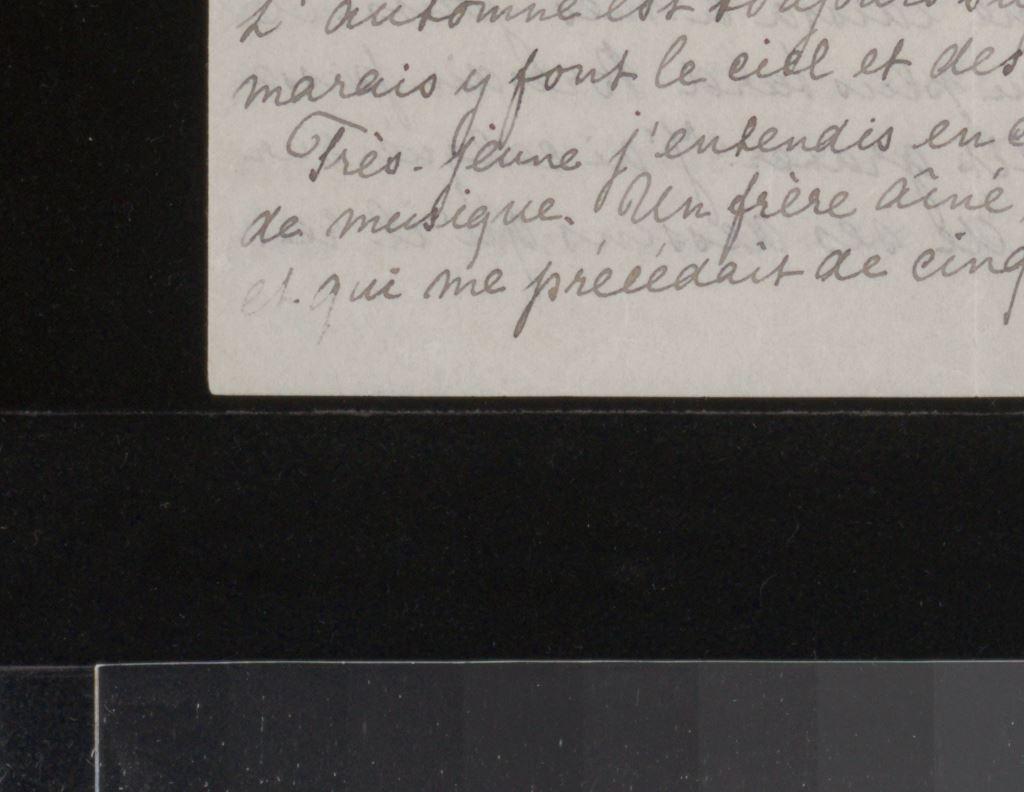 L'automne est toujours
marais y font le ciel et des
Très-jeune j'entendis en
de musique. Un frère aîné
et qui me précédait de cinq